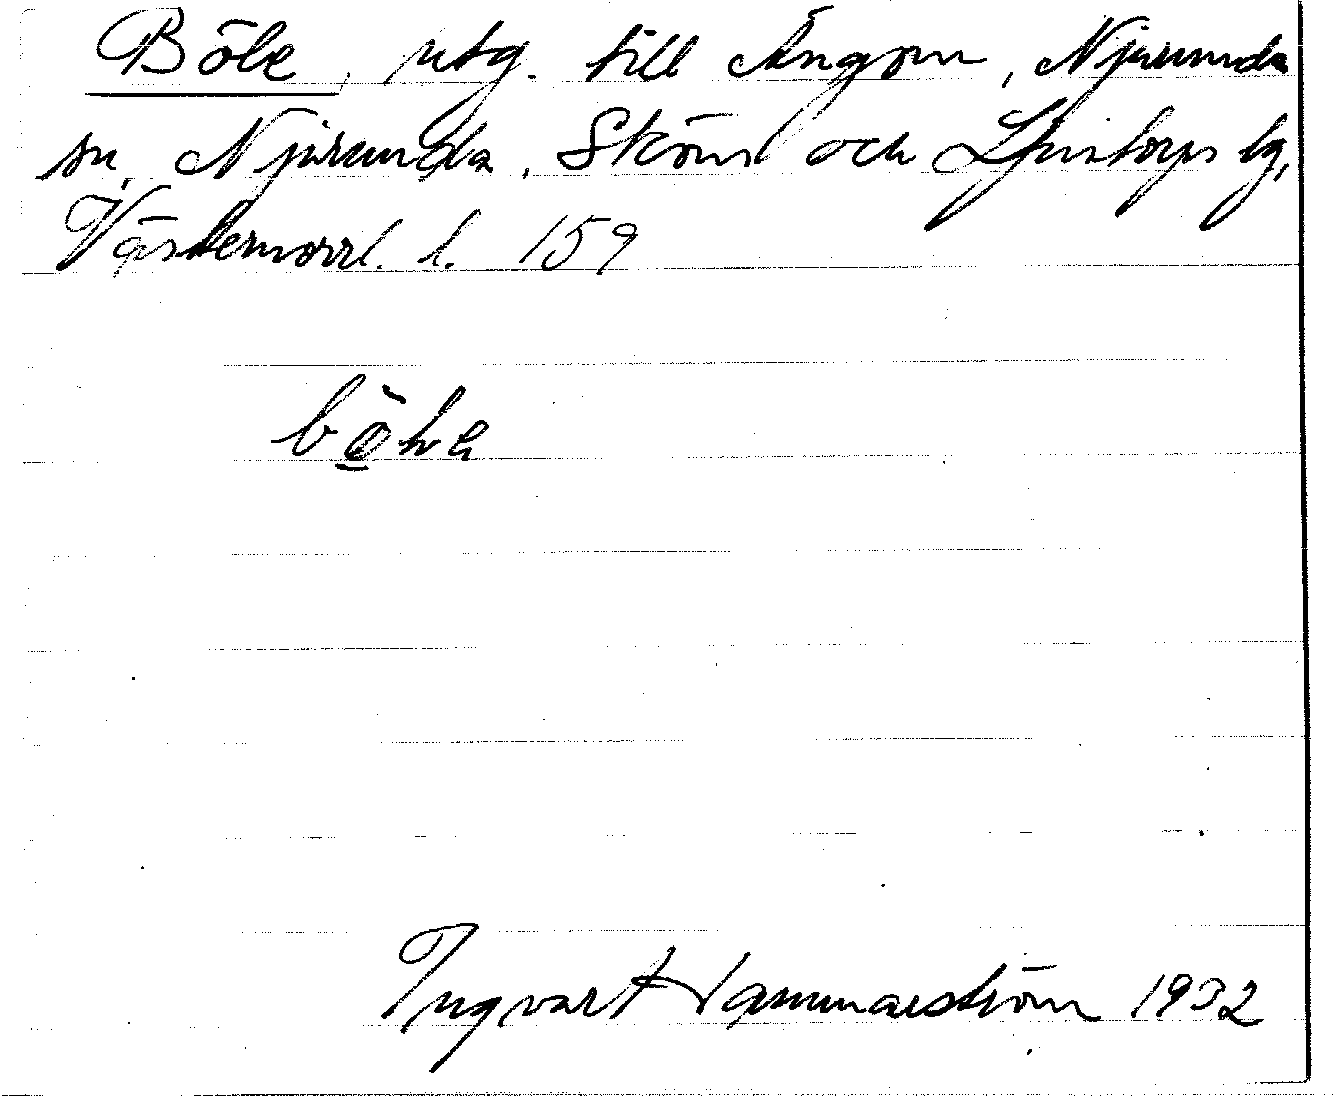 Böle, utg. till Ängom, Njurunda
sn, Njurunda, Sköns och Ljustorps tg,
Västernorrl. l. 159
Ingvart Hammarström 1932